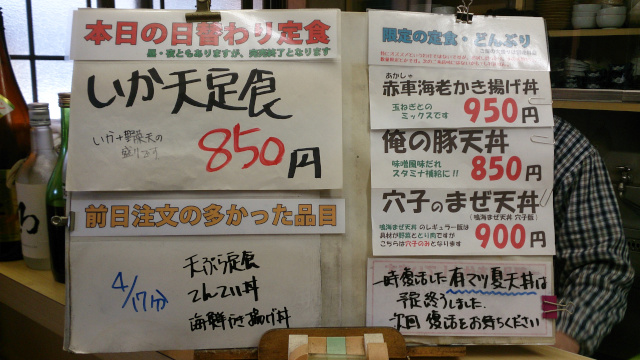 本日の日替わり定食
昼・夜ともありますが、完売終了となります
いか天定食
いか+野菜天の
盛りです
850円
前日注文の多かった品目
4/17分
天ぷら定食
てんてい丼
海鮮かき揚げ丼
限定の定食・どんぶり
あかしゃ
赤車海老かき揚げ丼
玉ねぎとの
ミックスです
950円
俺の豚天丼
味噌風味だれ
スタミナ補給に!!
850円
穴子のまぜ天丼
(鳴海まぜ天丼 穴子飯)
鳴海まぜ天丼 のレギュラー飯は
具材が野菜ととり肉ですが
こちらは穴子のみとなります
900円
一時復活した 有マツ夏天丼は
予定終うしました
次回 復活をお待ちください